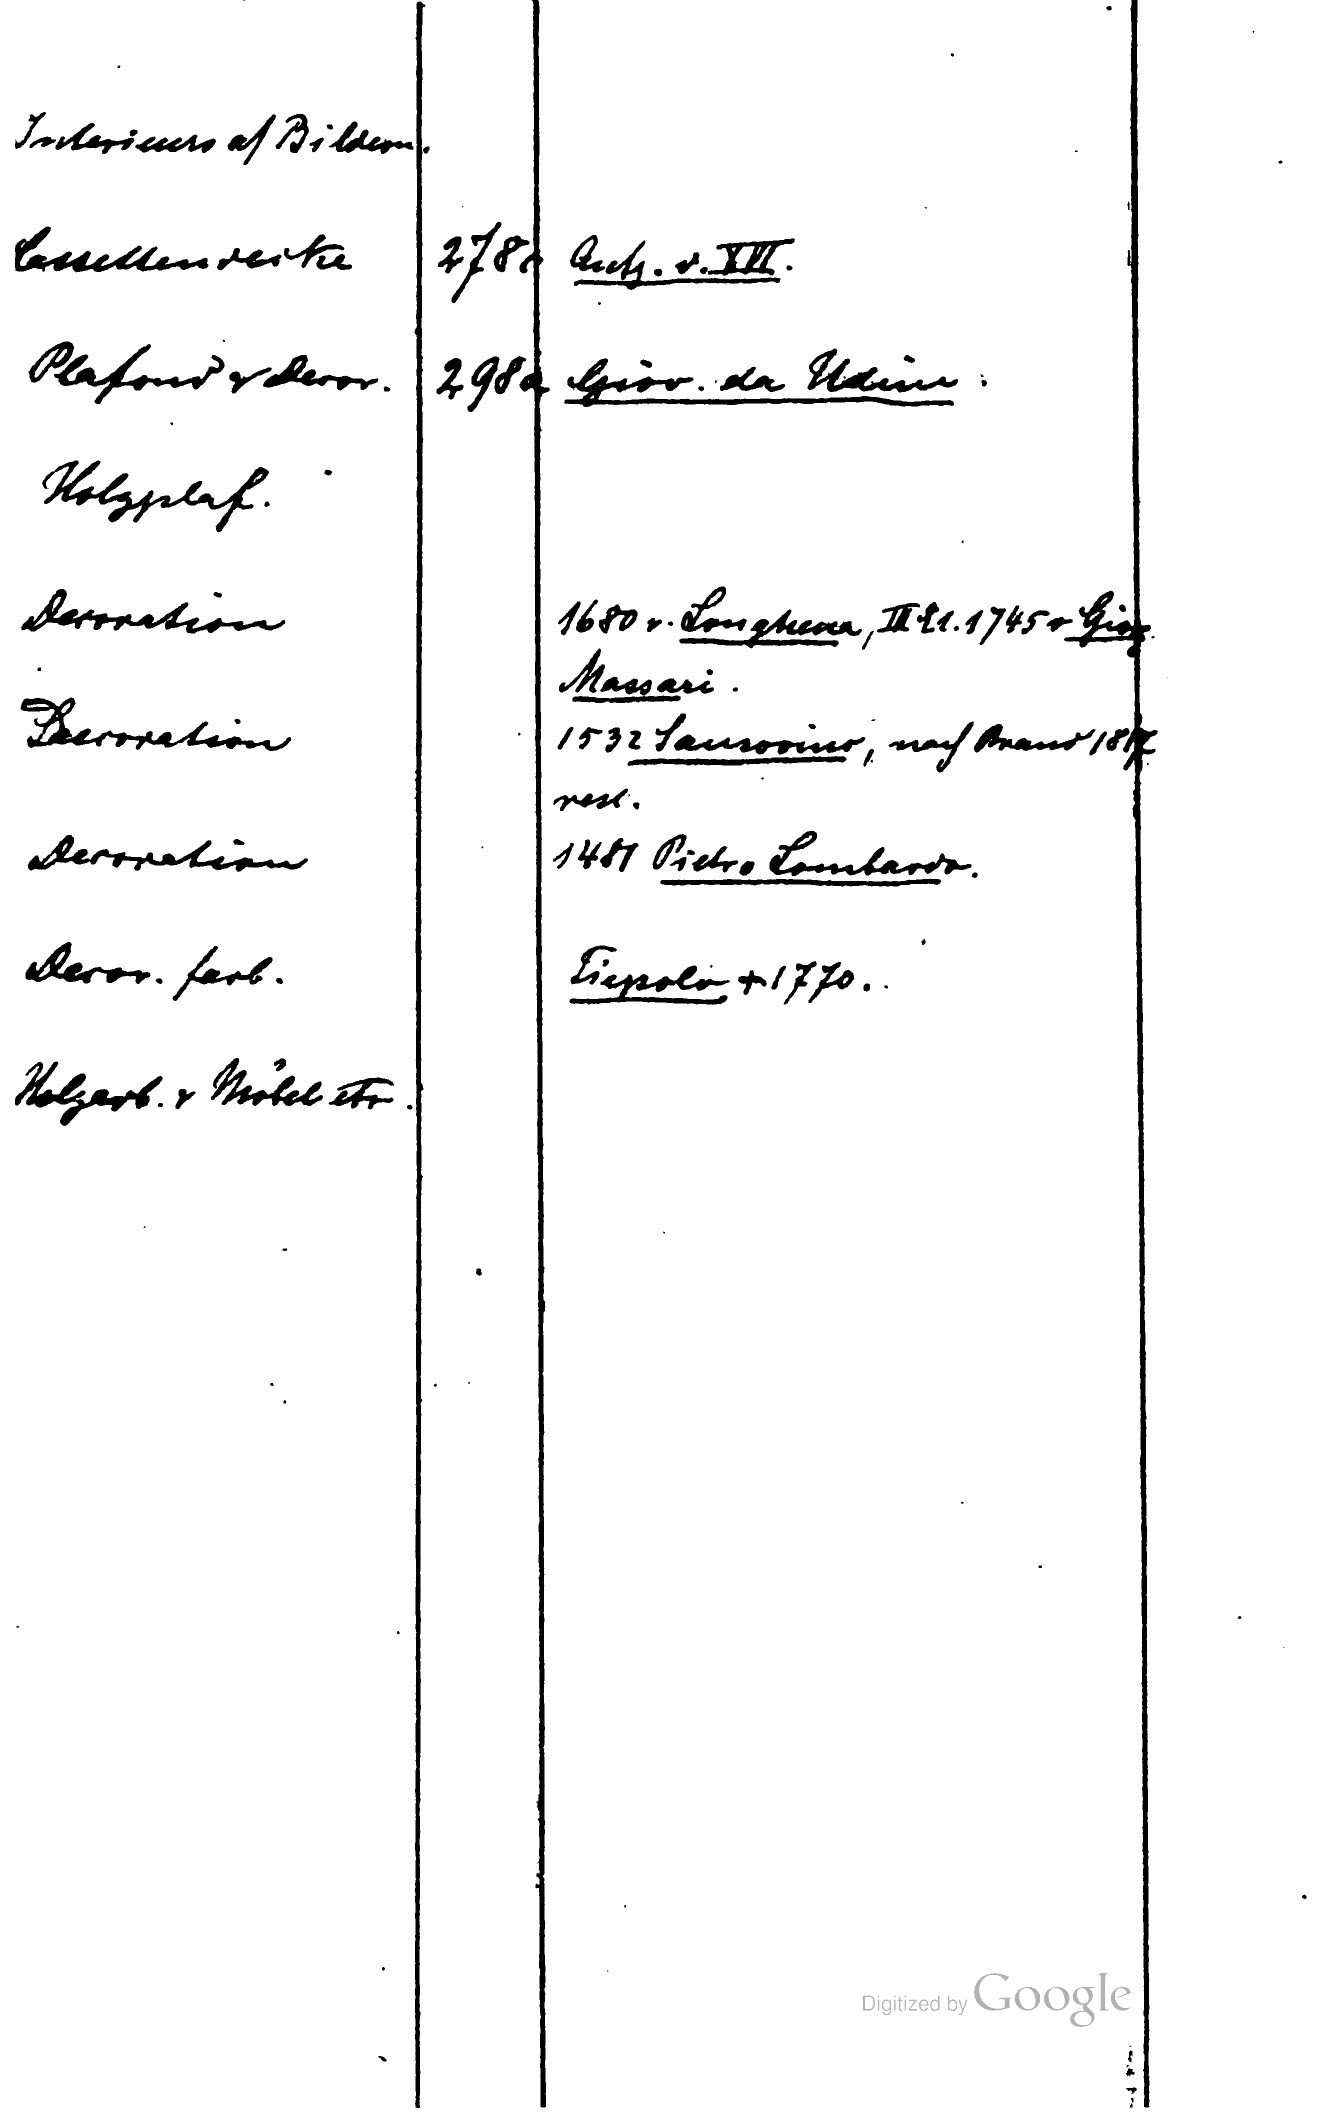 Interieurs a/ Bildern.
Cassettendecke 278a Anfg. d. XVI.
Plafond & Decor. 298a Giov. da Udine.
Holzplaf.
Decoration 1680 v. Longhena, III Et. 1745 v Giorg.
Massari.
Decoration 1532 Sansovino, nach Brand 1817
rest.
Decoration 1481 Pietro Lombardo.
Decor. farb. Tiepolo + 1770.
Holzarb. & Möbel etc.
Digitized by Google